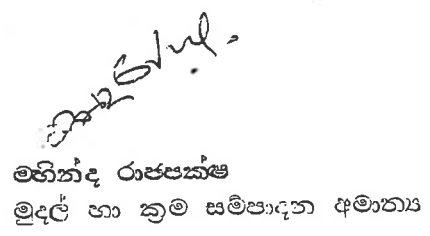 මහින්ද රාජපක්ෂ
මුදල් හා ක්‍රම සම්පාදන අමාත්‍ය